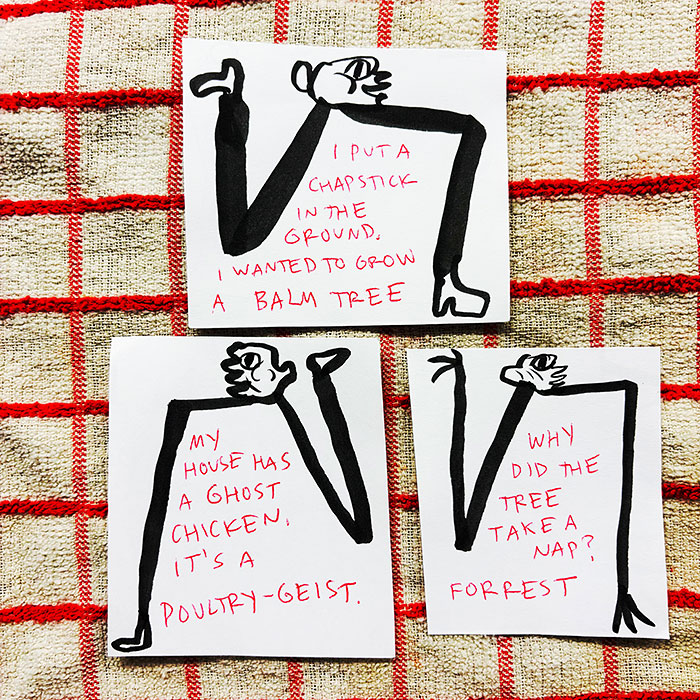 I PUT A
CHAPSTICK
IN THE
GROUND.
I WANTED TO GROW
A BALM TREE
MY
HOUSE HAS
A GHOST
CHICKEN.
IT'S A
POULTRY-GEIST.
WHY
DID THE
TREE
TAKE A
NAP?
FORREST